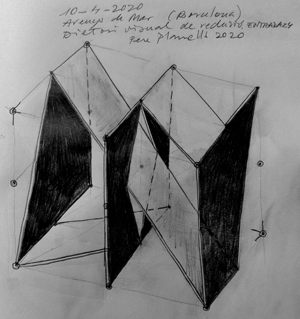 10-4-2020
Arenys de Mar (Barcelona)
Dietari visual de reclusió, ENTRELLAÇ
Pere planells 2020